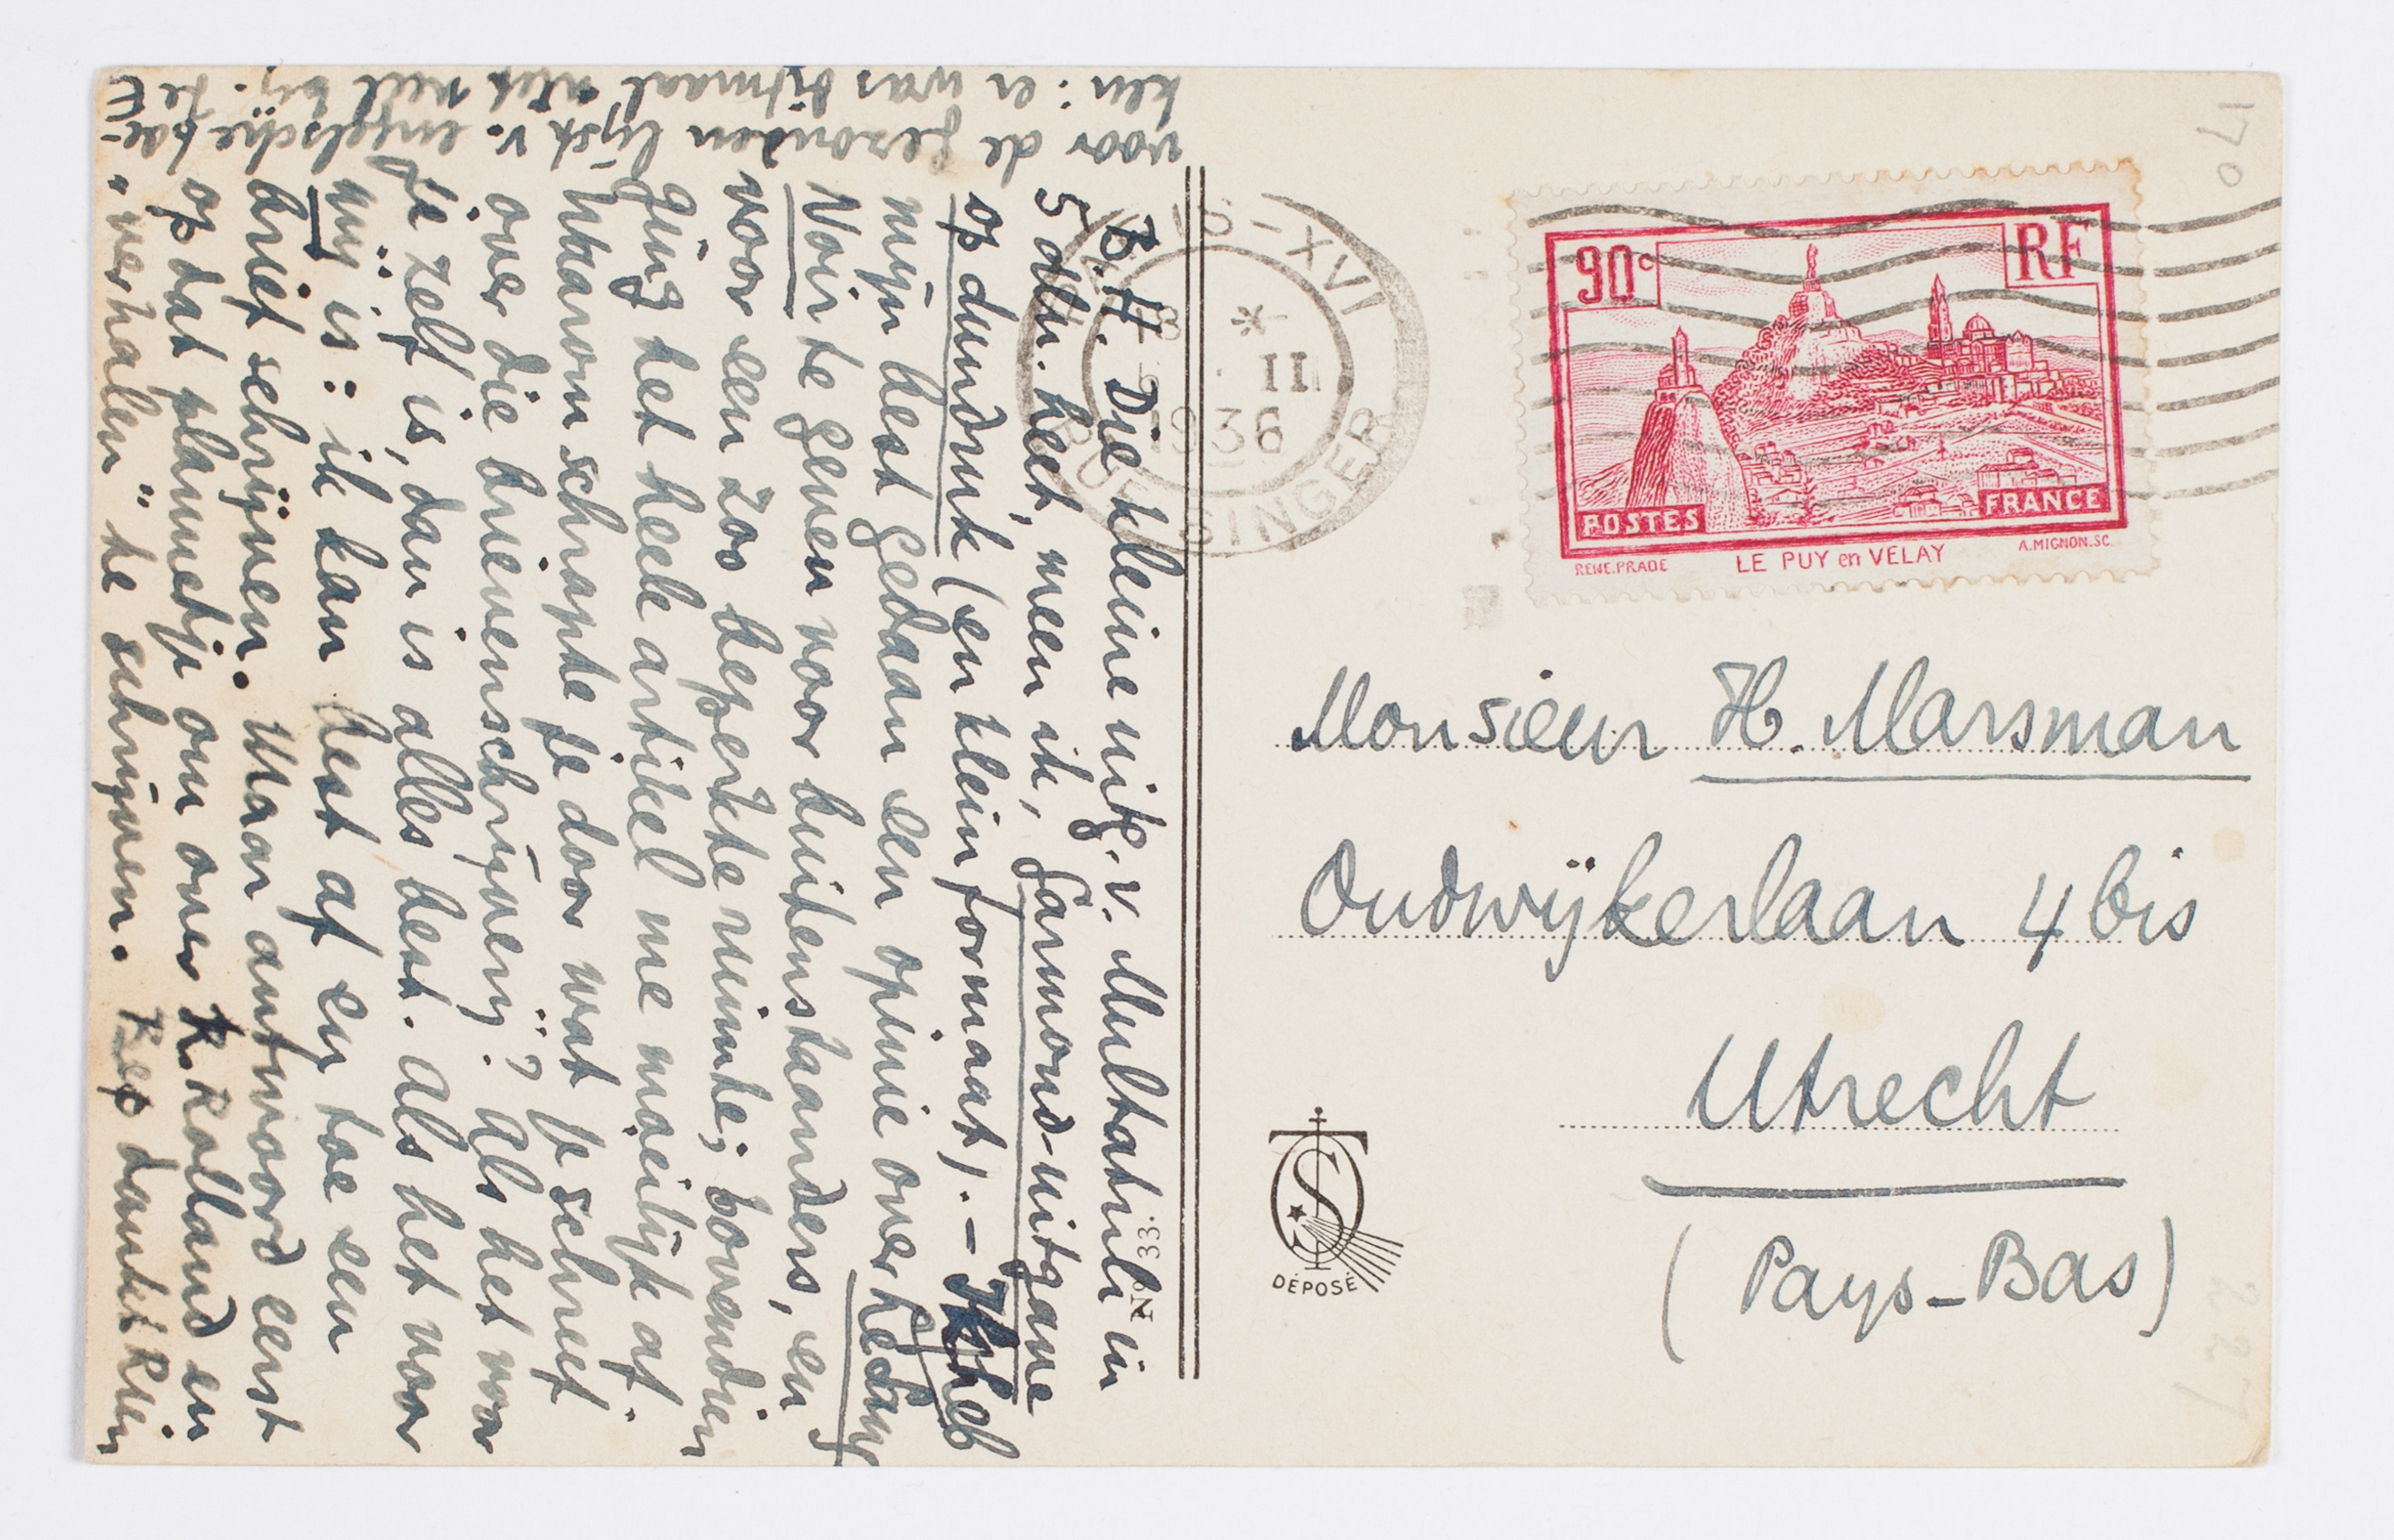 B.H. Die kleine uitg. v. Multatuli in
5 dln. heet, meen ik, Garmond-uitgave
op dundruk (en klein formaat). – Ik heb
mijn best gedaan een opinie over Ledang
Noir te geven voor buitenstaanders, en
voor een zoo beperkte ruimte; bovendien
ging het heele artikel me moeilijk af.
Waarom schrapte je door wat je schreef
over die brievenschrijverij? Als het voor
je zelf is, dan is alles best. Als het voor
mij is: ik kan best af en toe een
brief schrijven. Maar antwoord eerst
op dat plannetje om over R. Rolland en
"verhalen" te schrijven. Bep dankt Rien
voor de gezonden lijst v. engelsche boe-
ken: er was ditmaal niet veel bij. Je
E
Monsieur H. Marsman
Oudwijkerlaan 4 bis
Utrecht
(Pays-Bas)
90c
RF
POSTES
FRANCE
RENE.PRADE
LE PUY en VELAY
A.MIGNON.SC
XVI
II
36
SINGER
DÉPOSÉ
No 33.
170
227